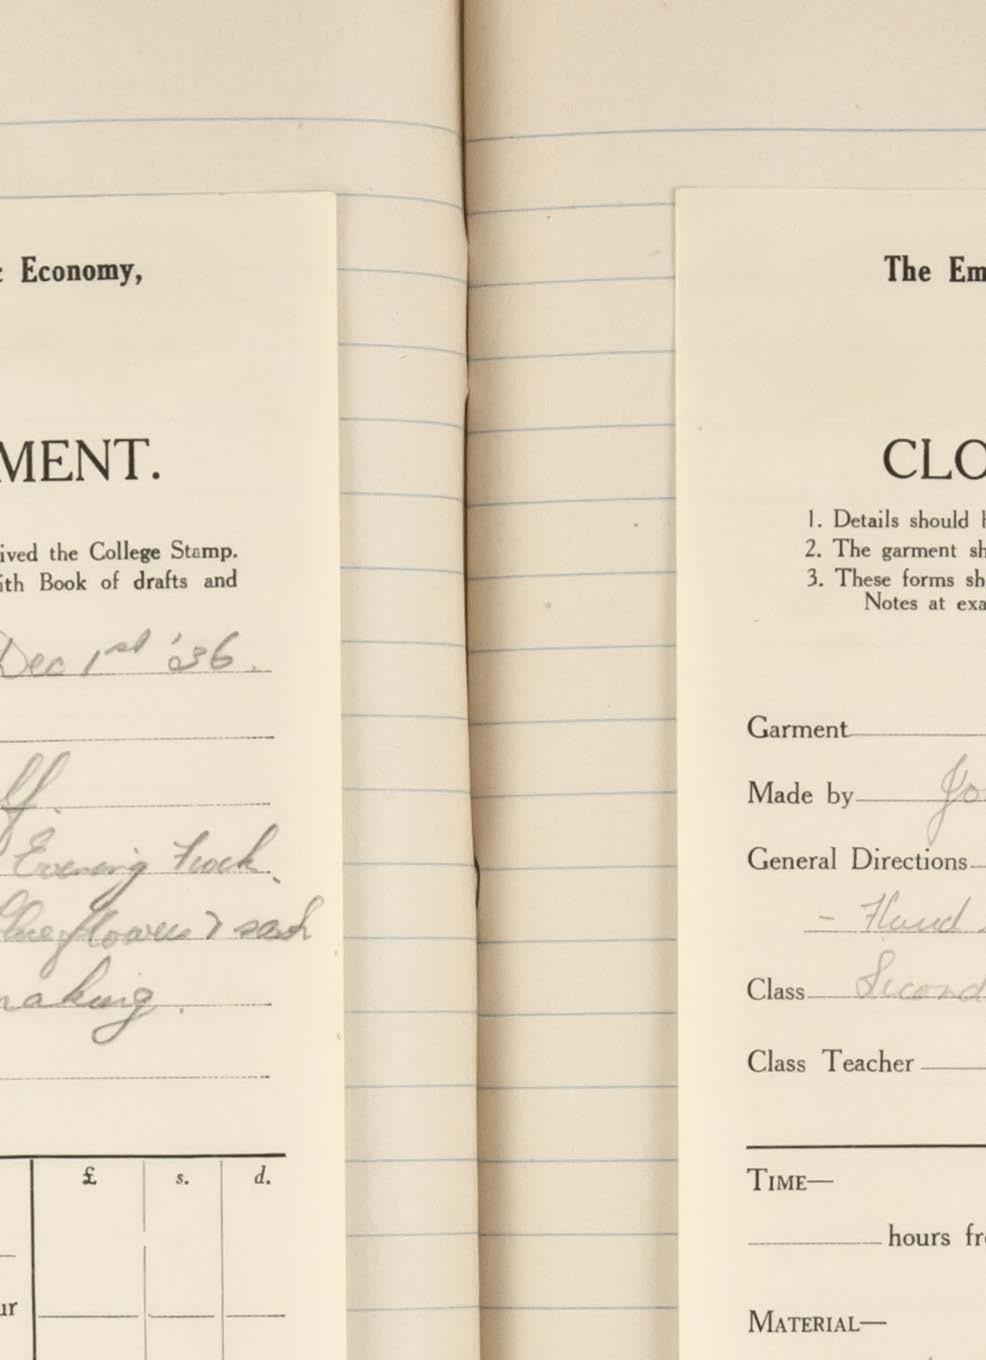 Economy,
MENT.
ived the College Stamp.
ith Book of drafts and
Dec 1st '36.
Evening Frock.
blue flowers & sash
making.
£ s. d.
ur
The Em
CLO
1. Details should b
2. The garment sh
3. These forms sh
Notes at exa
Garment
Made by Jo
General Directions
- Hand
Class Second
Class Teacher
TIME—
hours fro
MATERIAL—